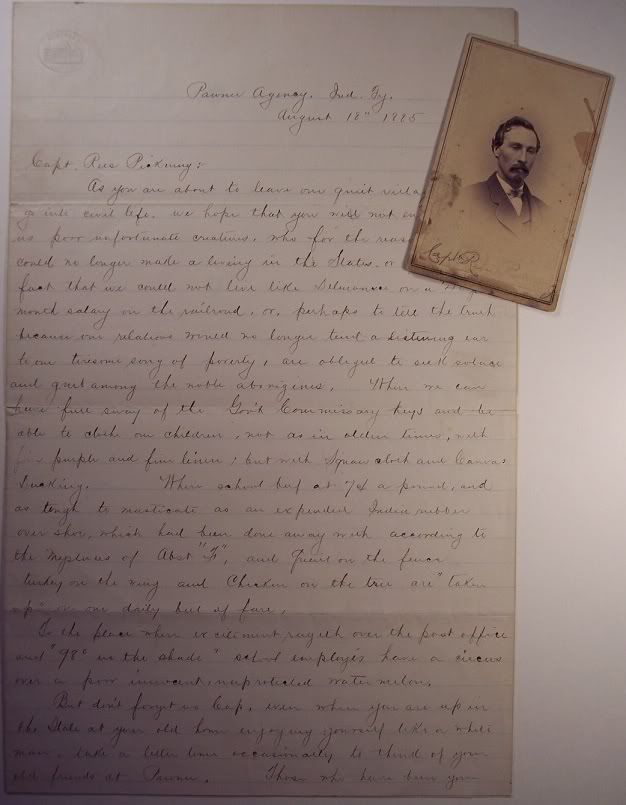 Pawnee Agency. Ind. Ty.
August 18" 1885
Capt. Rees Pickering:
As you are about to leave our quiet villa
go into civil life. we hope that you will not en
us poor unfortunate creatures, who for the reas
could no longer make a living in the States. or
fact that we could not live like on a
month salary on the railroad, or, perhaps to tell the truth
because our relations would no longer lend a listening ear
to our tiresome song of poverty, are obliged to seek solace
and quiet among the noble aborigines. Where we can
have full sway of the Gov't Commissary keys and be
able to clothe our children, not as in olden times, with
fine purple and fine linen, but with Squaw cloth and Canvas
Ducking. Where school beef at a pound, and
as tough to masticate as an expended India rubber
over shoe, which had been done away with according to
the of Abst "F", and Quail on the fence
turkey on the wing and Chicken on the tree are "taken
up" on our daily bill of fare.
To the place where excitement rageth over the post office
and "98° in the shade" school employés have a circus
over a poor innocent, unprotected water melon.
But don't forget us Cap, even when you are up in
the State at your old home enjoying yourself like a white
man, take a little time occasionally to think of your
old friends at Pawnee. Those who have been your
Capt Rees